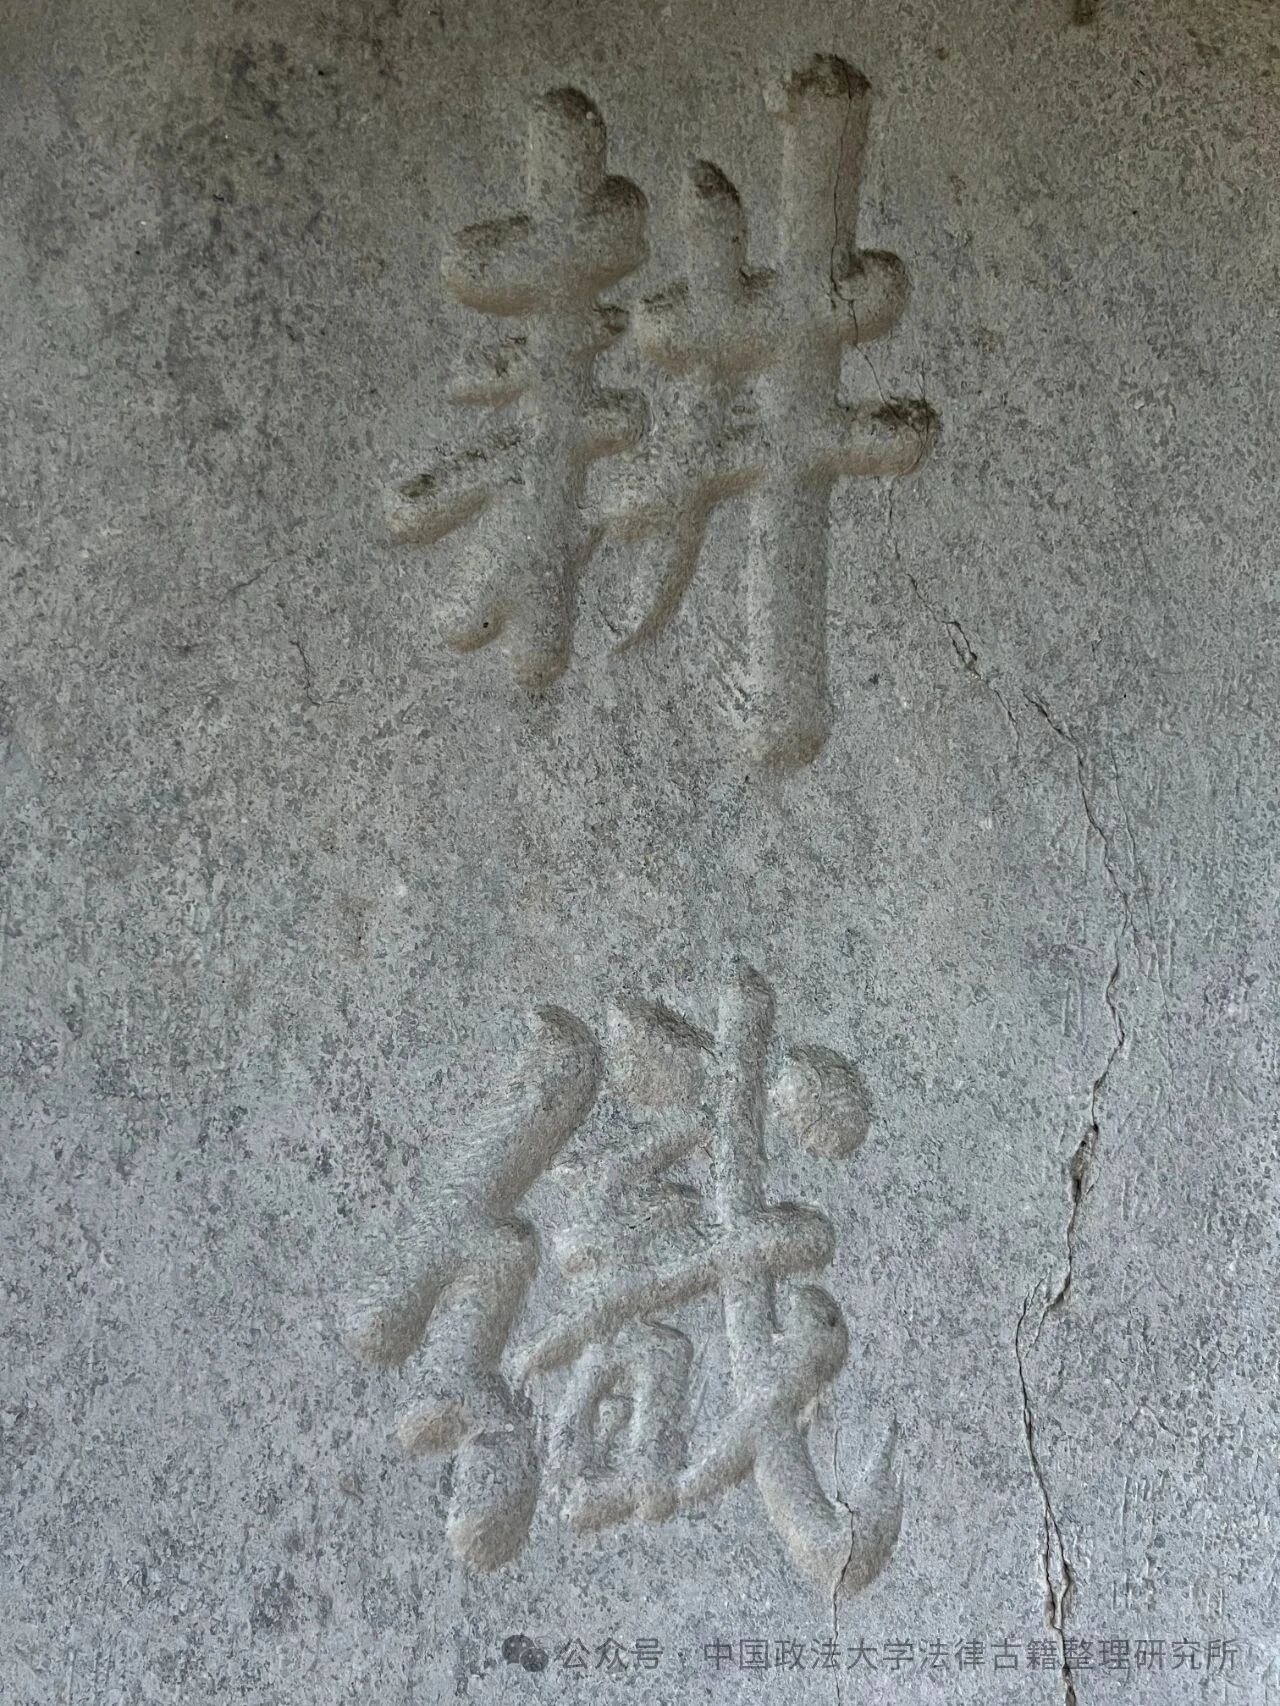 耕織
公众号·中国政法大学法律古籍整理研究所